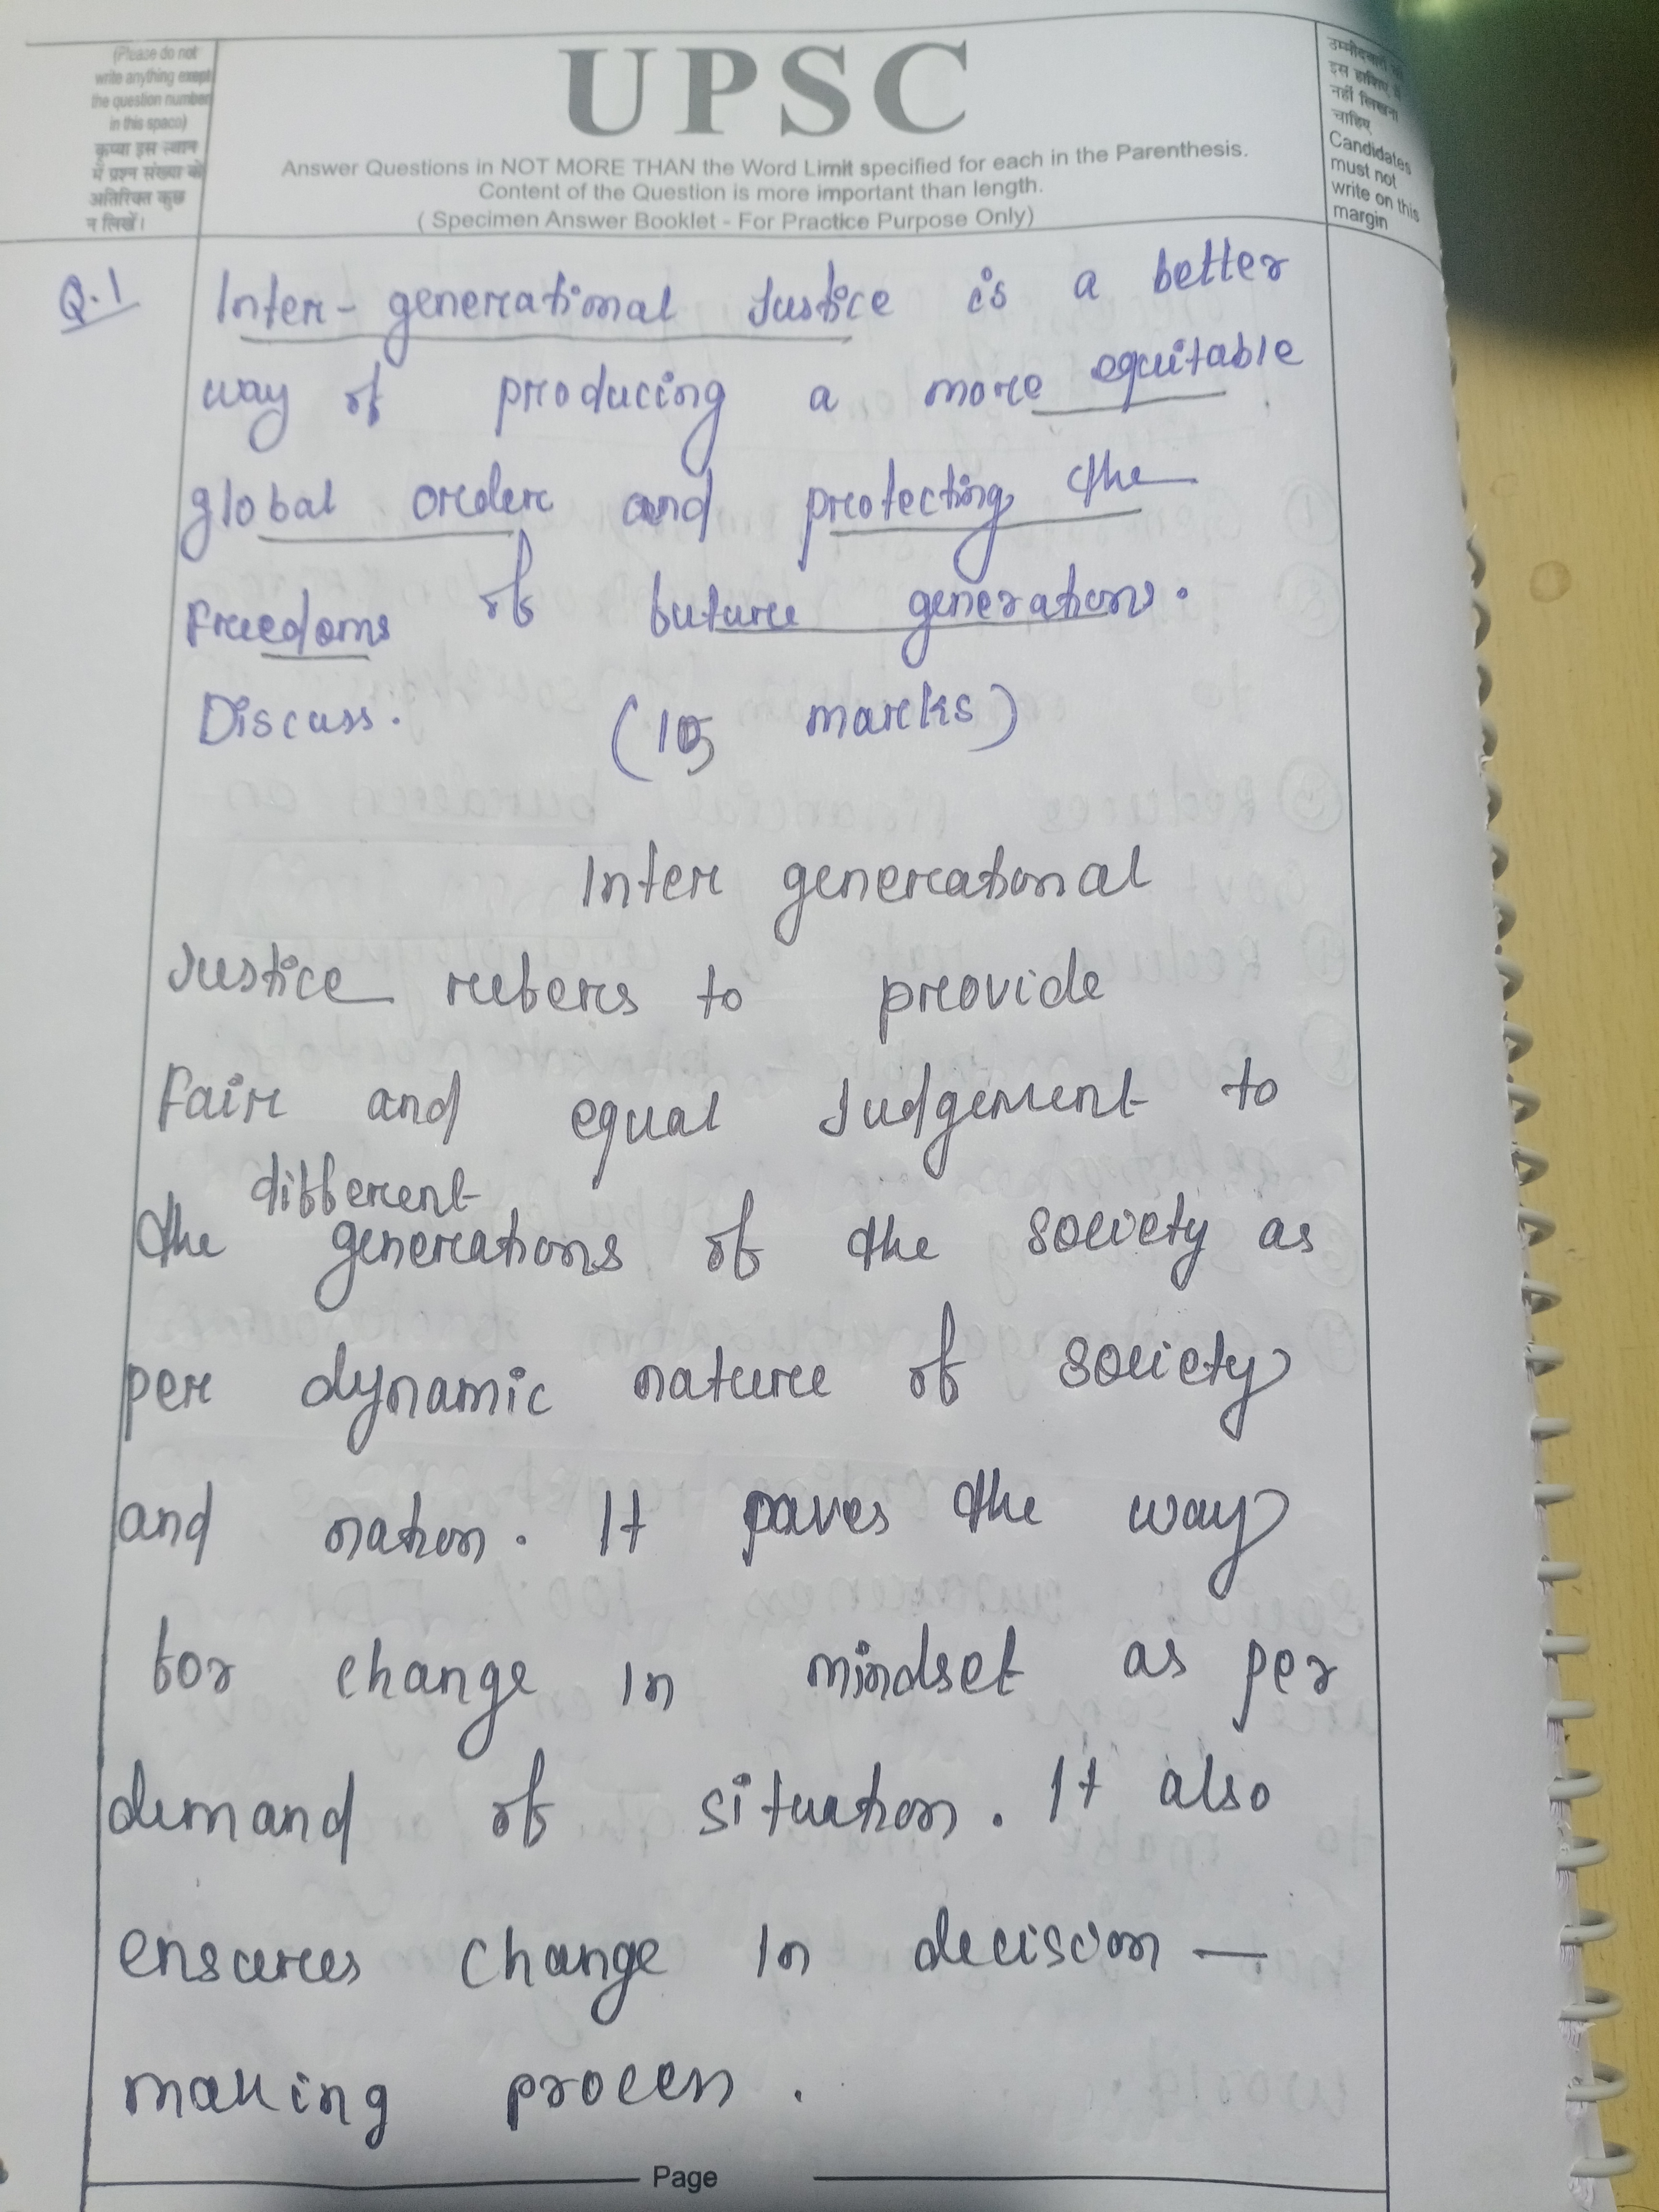 (Please do not
write anything exept
the question number
in this space)
कृप्या इस स्थान
में प्रश्न संख्या के
अतिरिक्त कुछ
न लिखें।
UPSC
Answer Questions in NOT MORE THAN the Word Limit specified for each in the Parenthesis.
Content of the Question is more important than length.
( Specimen Answer Booklet - For Practice Purpose Only)
उम्मीदवारों को
इस हाशिए में
नहीं लिखना
चाहिए
Candidates
must not
write on this
margin
Q.1
Inter-generational Justice is a better
way of producing a more equitable
global order and protecting the
Freedoms of future generations.
Discuss. (15 marks)
Inter generational
Justice refers to provide
Fair and equal Judgement to
the different generations of the society as
per dynamic nature of society
and nation. It paves the way
for change in mindset as per
demand of situation. It also
ensures change in decision —
making process.
Page